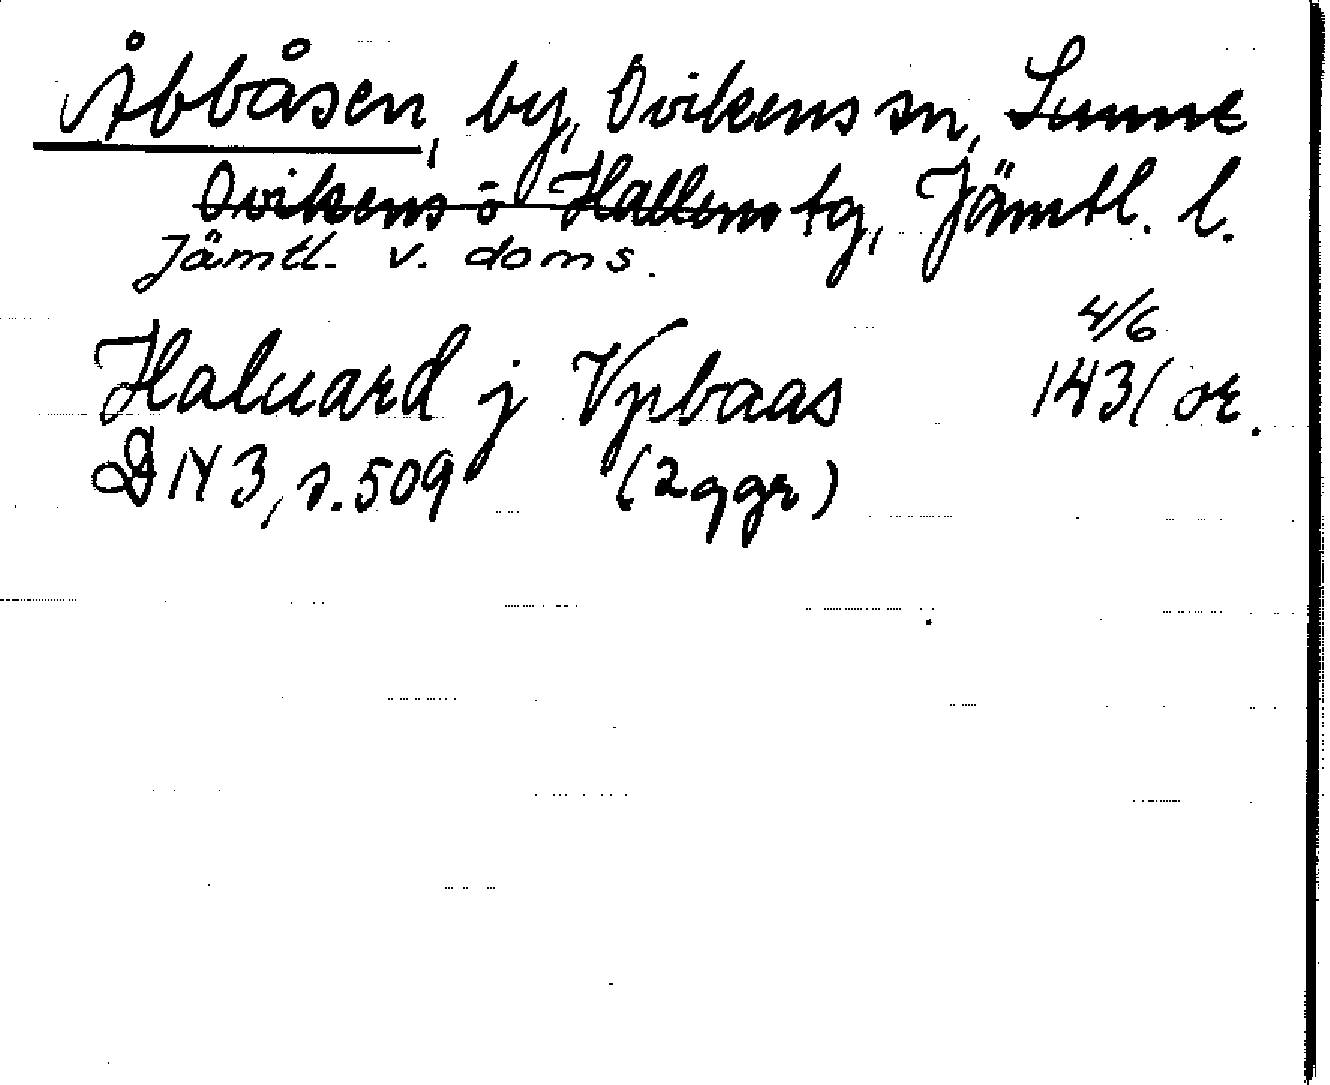 Åbbåsen, by, Ovikens sn, Sunne
Ovikens o Hallens tg, Jämtl. l.
Jämtl. v. doms.
4/6
Haluard j Vpbaas 1431 or.
DN 3, s. 509 (2 ggr)